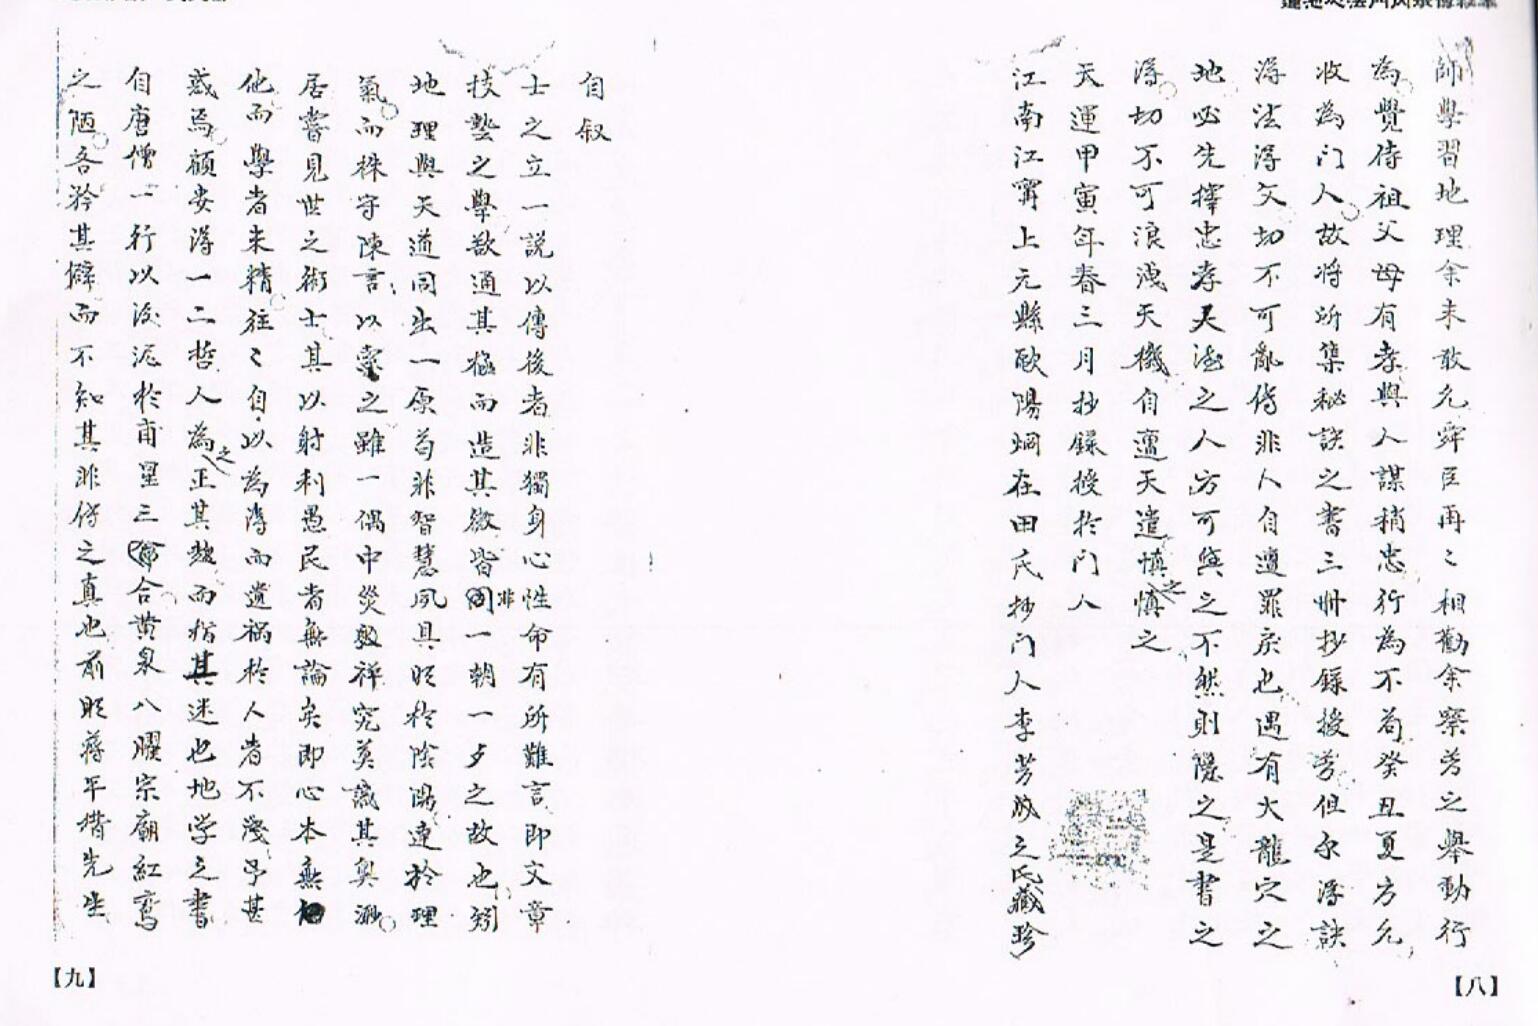 師學習地理余未敢允舜臣再〻相勸余察芳之舉動行
為覺侍祖父母有孝與人謀稍忠行為不苟癸丑夏方允
收為门人故将所集秘訣之書三冊抄錄授芳但尔淂訣
淂法淂文切不可亂傳非人自遭罪戾也遇有大龍穴之
地必先擇忠孝天德之人方可與之不然則隱之是書之
淂切不可浪洩天機自遭天遣慎之慎之
天運甲寅年春三月抄錄授於门人
江南江寧上元縣歐陽烱在田氏抄门人李芳成之氏藏珍
【八】
自叙
士之立一説以傳後者非獨身心性命有所難言即文章
技藝之學欲通其極而造其微皆非一朝一夕之故也矧
地理與天道同出一原苟非智慧夙具眀於陰陽達於理
氣而株守陳言以索之雖一偶中災
居嘗見世之術士其以射利愚民者無論矣即心本無
他而學者未精往〻自以為淂而遺禍於人者不淺予甚
惑焉顧安淂一二哲人為之正其趨而指其迷也地学之書
自唐僧一行以後泥於甫星三合黄泉八曜宗廟紅鸞
之陋各矜其癖而不知其非傳之真也前眀蒋平堦先生
【九】